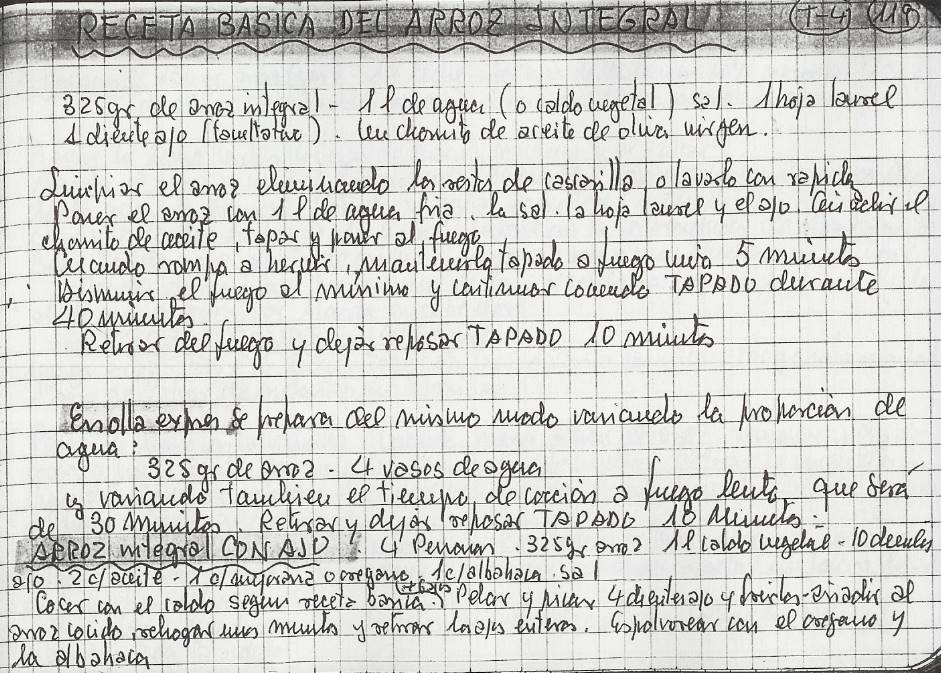 RECETA BASICA DEL ARROZ INTEGRAL (T-4) (119)
325gr de arroz integral - 1 l de agua (o caldo vegetal) sal. 1 hoja laurel
1 diente ajo (facultativo). Un chorrito de aceite de oliva virgen.
Limpiar el arroz eliminando los restos de cascarilla, o lavarlo con rapidez
Poner el arroz con 1 l de agua fria, la sal. la hoja laurel y el ajo. Añadir el
chorrito de aceite, tapar y poner al fuego
Cuando rompa a hervir, mantenerlo tapado a fuego vivo 5 minutos
Disminuir el fuego al minimo y continuar cociendo TAPADO durante
40 minutos.
Retirar del fuego y dejar reposar TAPADO 10 minutos
En olla expres se prepara del mismo modo variando la proporción de
agua:
325 gr de arroz - 4 vasos de agua
y variando tambien el tiempo de cocción a fuego lento, que será
de 30 minutos. Retirar y dejar reposar TAPADO 10 Minutos.
ARROZ integral CON AJO 4 Personas. 325gr arroz 1 l caldo vegetal - 10 dientes
ajo. 2 c/aceite - 1 c/mejorana o oregano, 1c/albahaca. sal
Cocer con el caldo segun receta basica. Pelar y picar 4 dientes ajo y freirlos - añadir al
arroz cocido, rehogar unos minutos y retirar los ajos enteros. Espolvorear con el oregano y
la albahaca